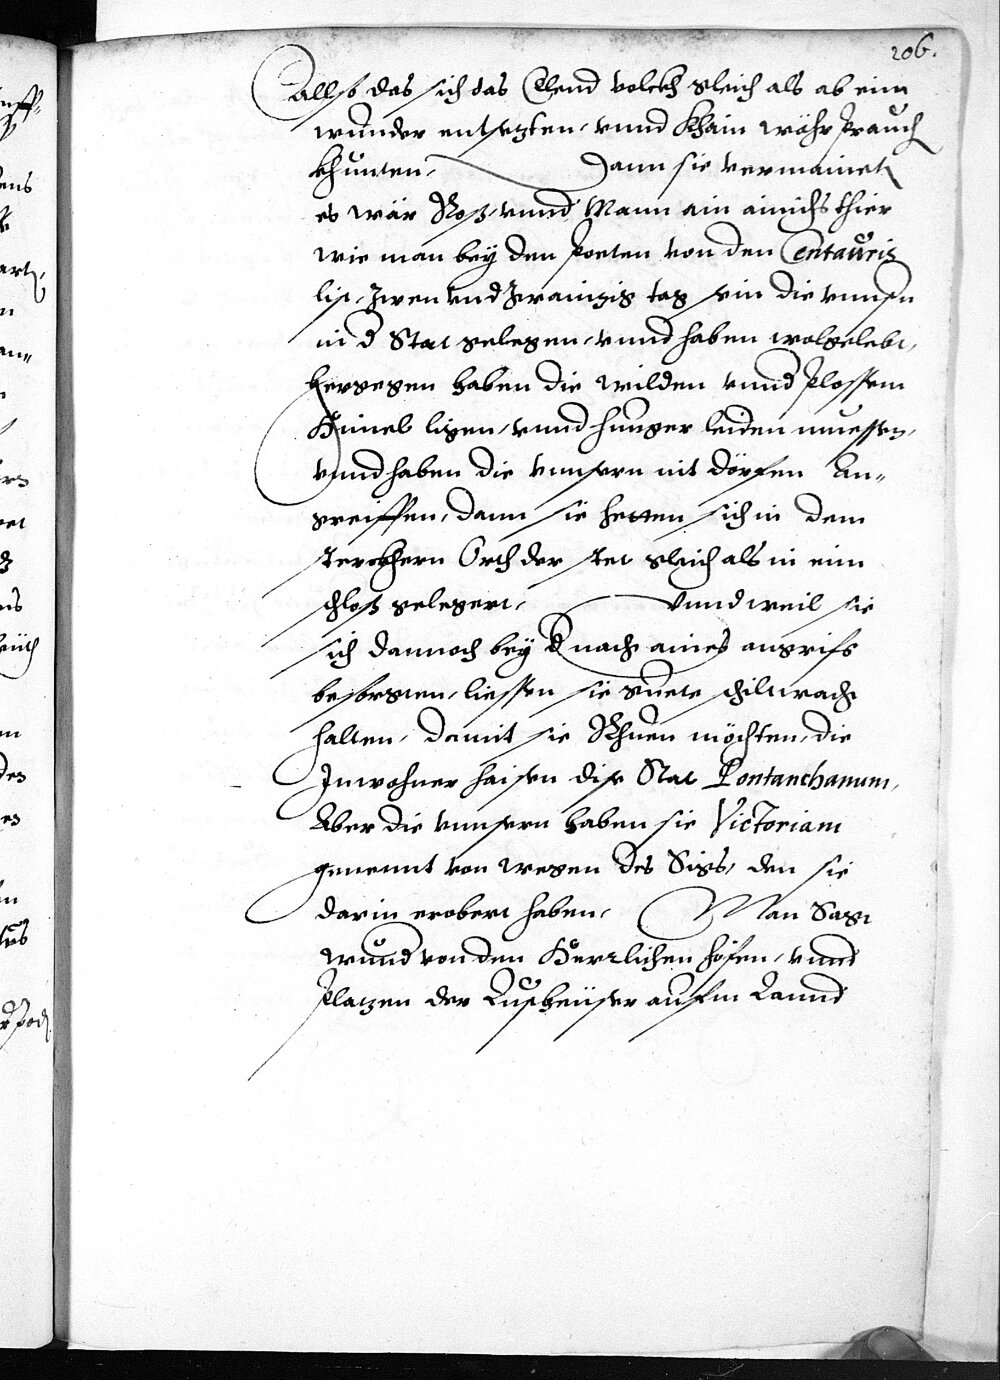 206.
Allso das sich das Elend volckh gleich als ab eim
wunder entsezten, vnnd Khain wöhr prauch
khunten, Dann sie vermainetn
es wär Roß vnnd Mann ain ainichs thier
wie man bey den Poeten von den Centauris
list, Zwen vnd Zwainzig tag sein die vnnsn
in d Stat gelegen, vnnd haben wolgelebt,
hergegen haben die wilden vnnd plossem
Himel ligen, vnnd hunger leiden muessen,
vnnd haben die vnnsern nit dörfen An-
greiffen, dann sie hetten sich in dem
sterckhern Orth der stet gleich als in eim
schloß gelegert, Vnnd weil sie
sich dannoch bey d nacht aines angrifs
besorgten, liessen sie guete schiltwacht
halten, damit sie Rhuen möchten, die
Inwohner haisen dise Stat Pontanchanum,
Aber die vnnsern haben sie Victoriam
genennt von wegen des Sigs, den sie
darin erobert haben, Man Sagt
wund von den Herrlichen höfen, vnnd
Platzen der Lustheüser aufm Lannd